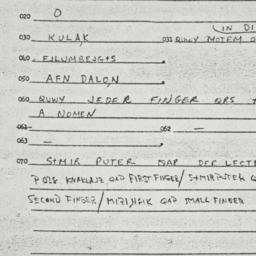 020 O
(IN DI
030 KULAK 033 QUWY MOTEM Q
040 FILUMBERGTS
050 AFN DALON
060 QUWY JEDER FINGER QRS
A NOMEN
061 — 062 —
063 —
070 STMIR PUTER GAP DER LECT
FIRST FINGER/STMIR PUTER Q
SECOND FINGER/MIZINIK GAP SMALL FINGER